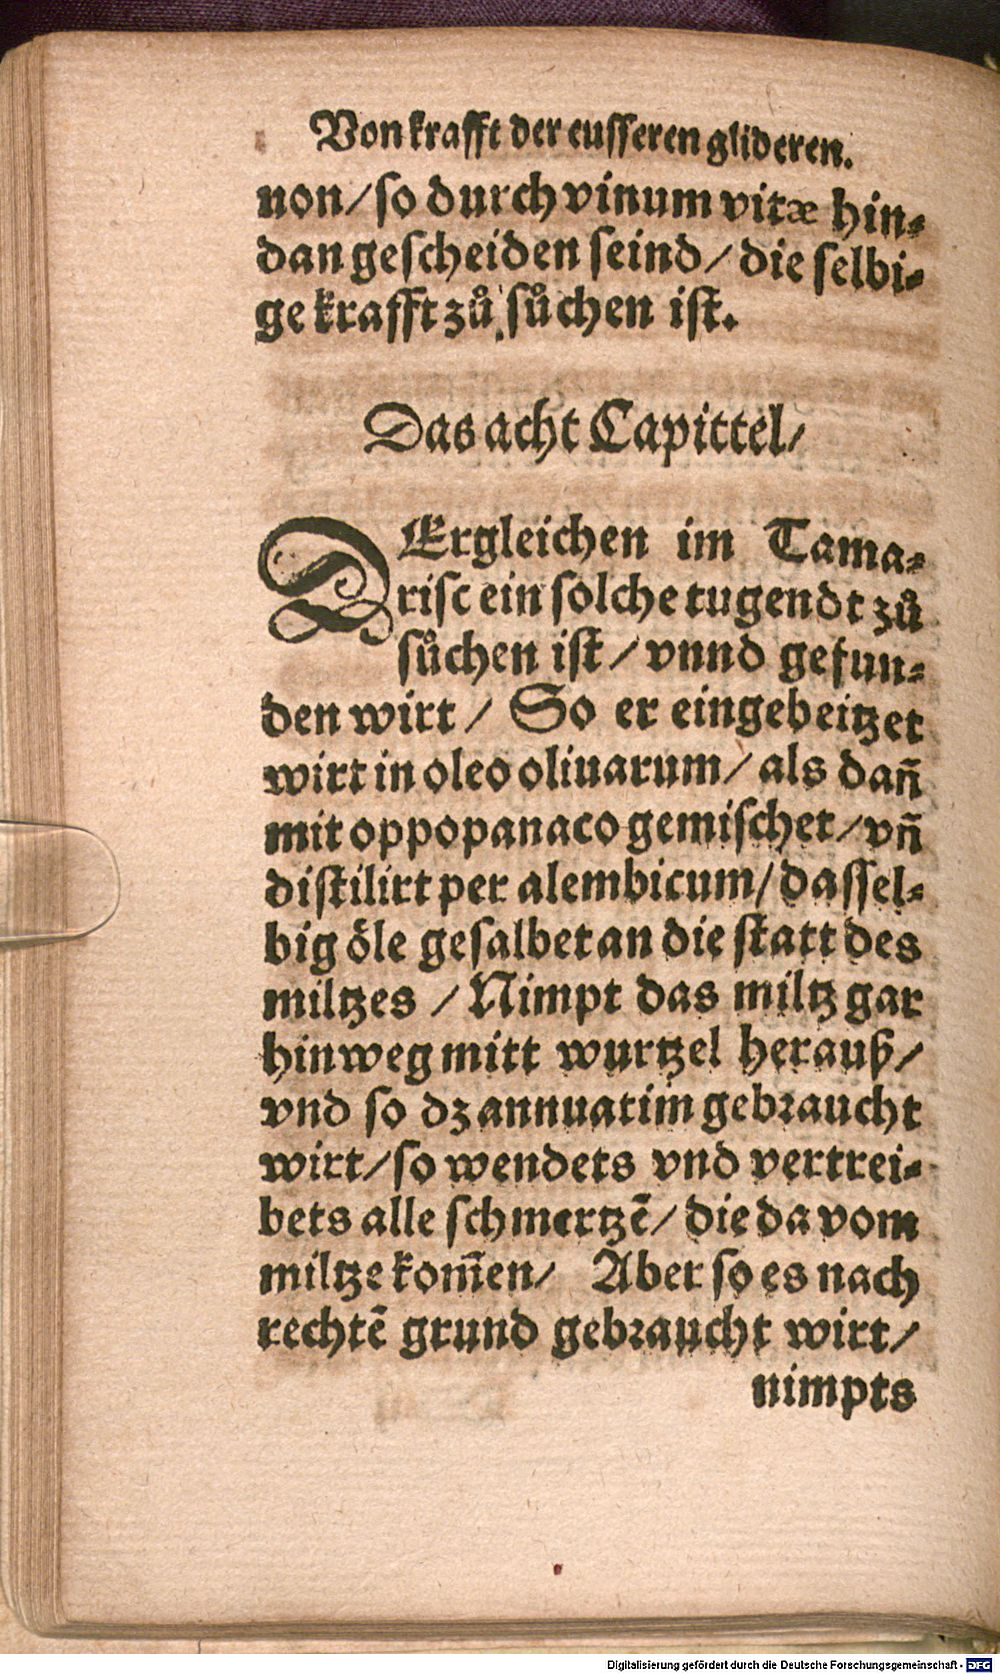 Von krafft der eusseren glideren.
non/ so durch vinum vitæ hin⸗
dan gescheiden seind/ die selbi⸗
ge krafft zů sůchen ist.
Das acht Capittel/
DErgleichen im Tama⸗
risc ein solche tugendt zů
sůchen ist/ vnnd gefun⸗
den wirt/ So er eingebeitzet
wirt in oleo oliuarum/ als dañ
mit oppopanaco gemischet/ vñ
distilirt per alembicum/ dassel⸗
big öle gesalbet an die statt des
miltzes/ Nimpt das miltz gar
hinweg mitt wurtzel herauß/
vnd so dz annuatim gebraucht
wirt/ so wendets vnd vertrei⸗
bets alle schmertzẽ/ die da vom
miltze kom̃en/ Aber so es nach
rechtẽ grund gebraucht wirt/
nimpts
Digitalisierung gefördert durch die Deutsche Forschungsgemeinschaft - DFG